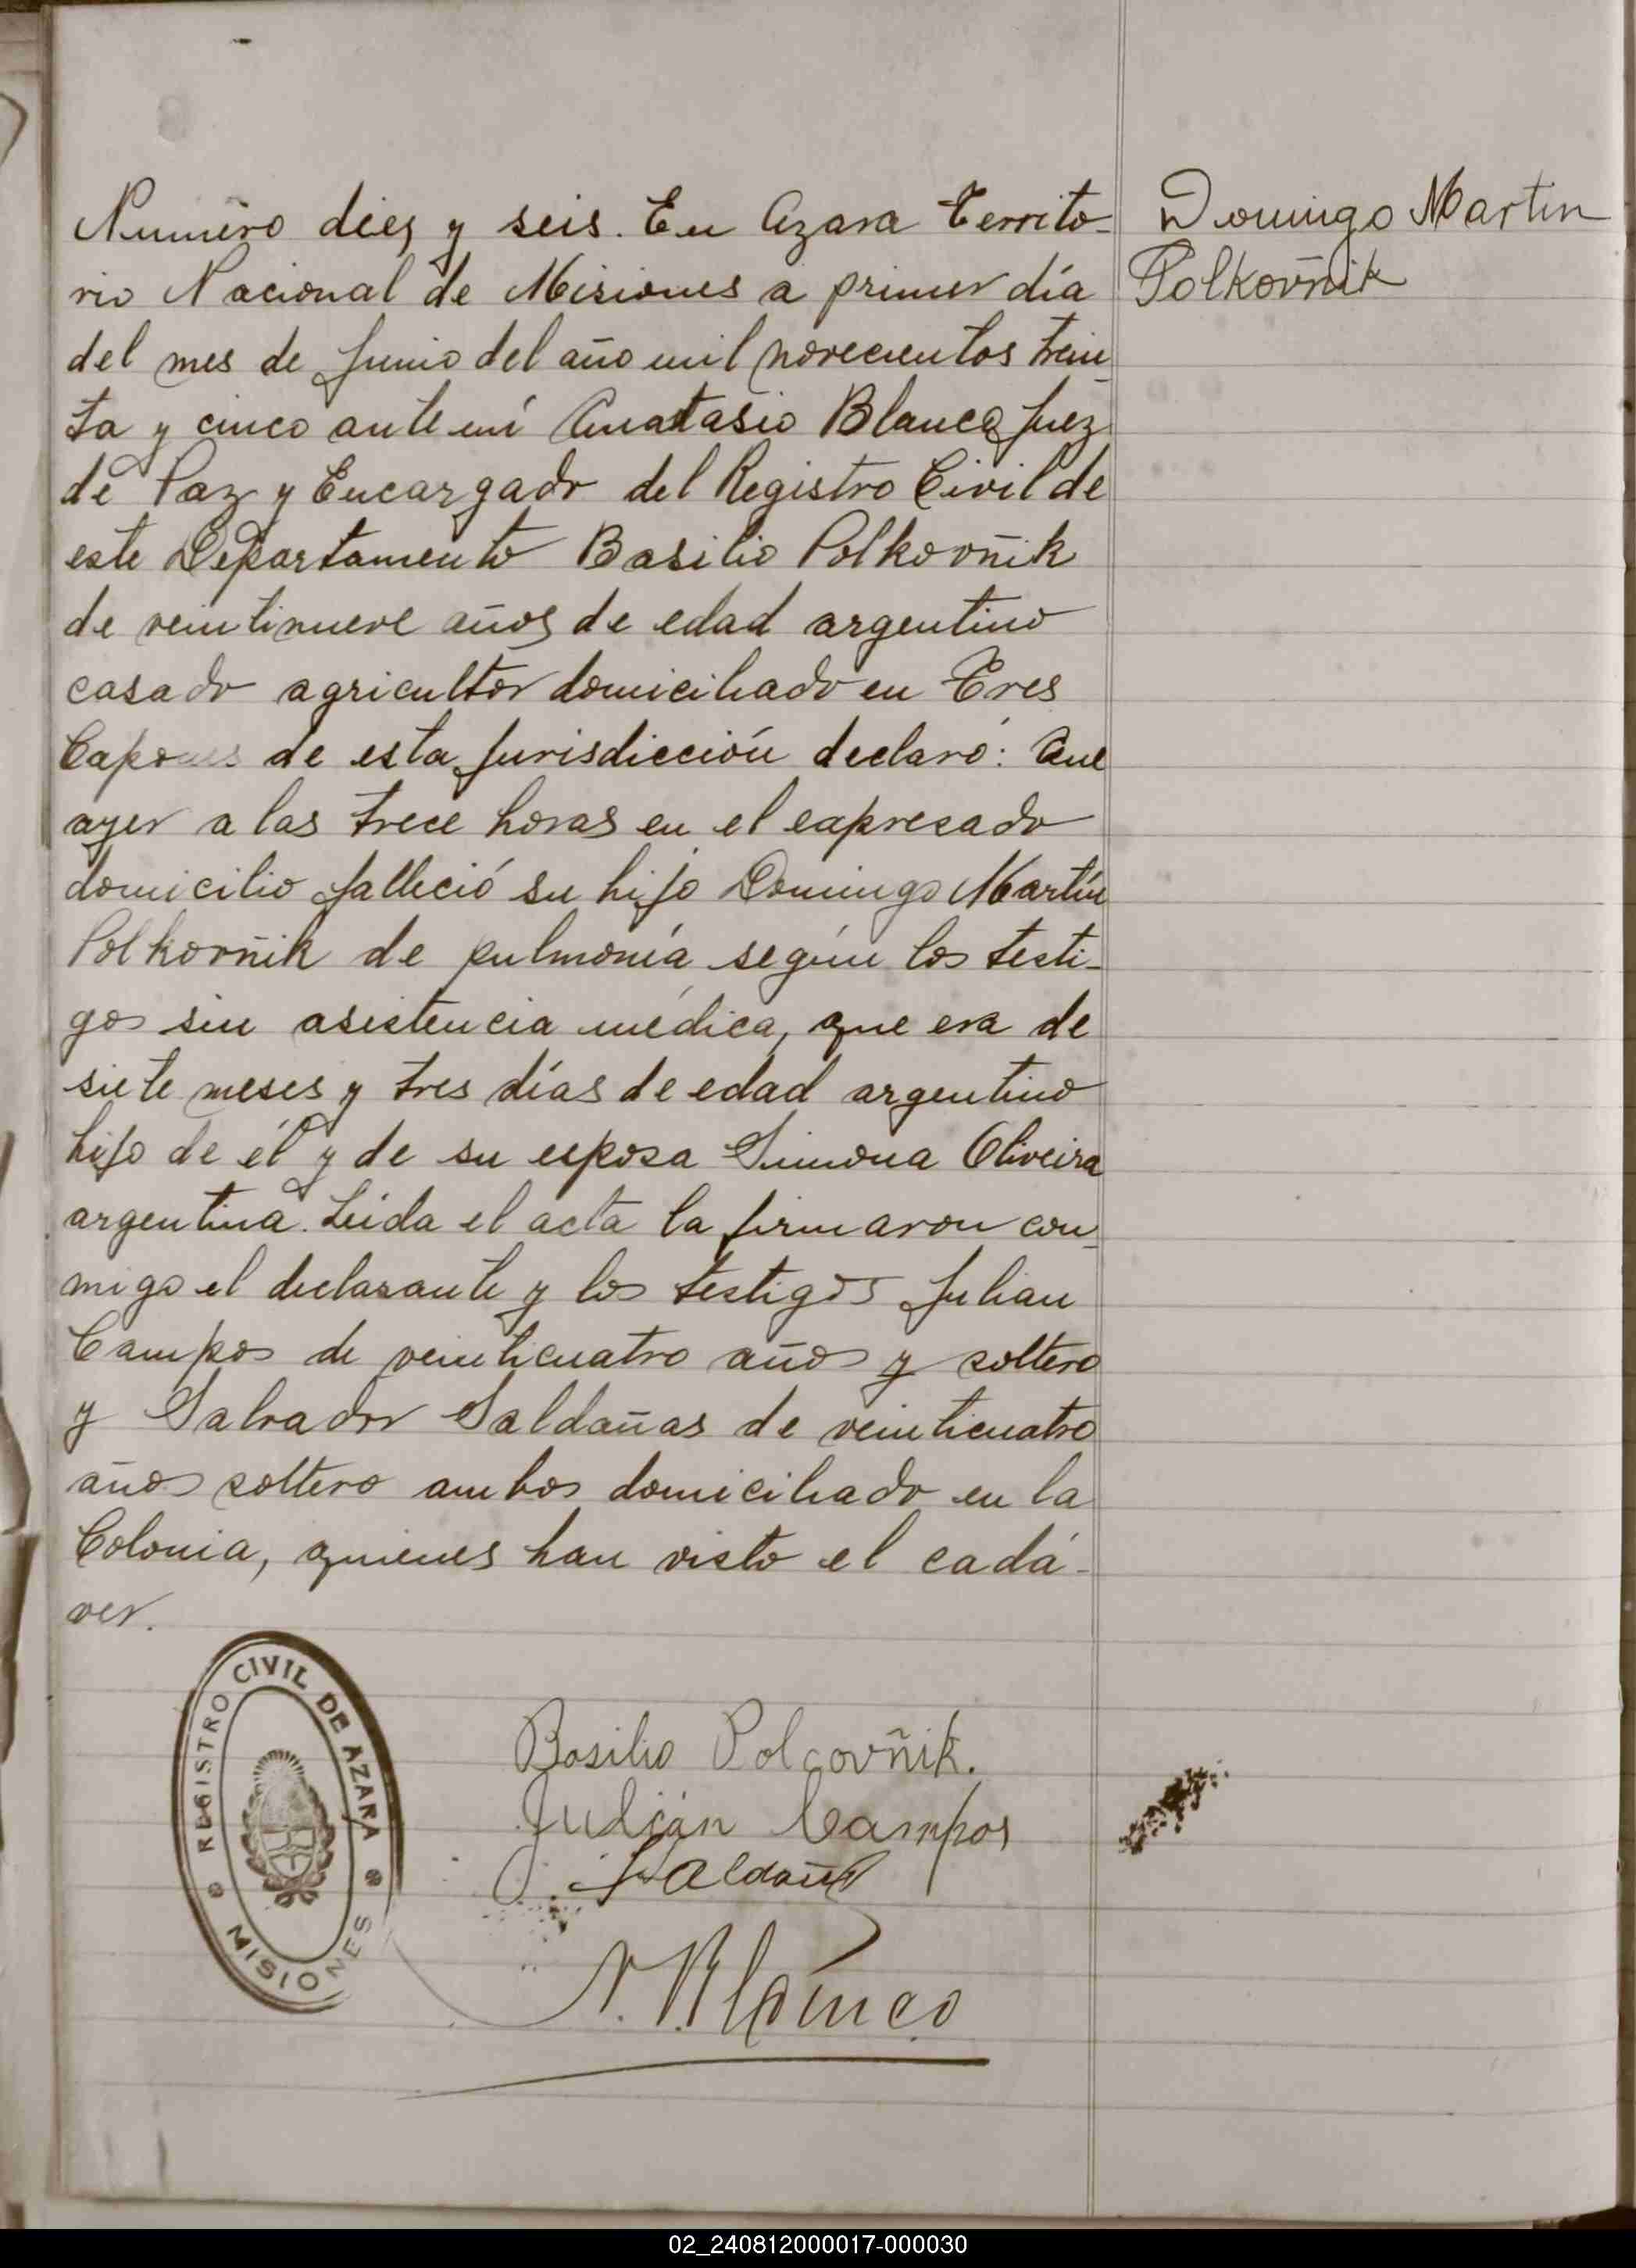 Domingo Martin
Polkovñik
Numero diez y seis. En Azara Territo-
rio Nacional de Misiones a primer día
del mes de Junio del año mil novecientos trein-
ta y cinco ante mí Anatasio Blanco Juez
de Paz y Encargado del Registro Civil de
este Departamento Basilio Polkovñik
de veintinueve años de edad argentino
casado agricultor domiciliado en Tres
Capones de esta Jurisdicción declaró: Que
ayer a las trece horas en el expresado
domicilio falleció su hijo Domingo Martín
Polkovñik de pulmonía según los testi-
gos sin asistencia médica, que era de
siete meses y tres días de edad argentino
hijo de él y de su esposa Simona Oliveira
argentina. Leida el acta la firmaron con-
migo el declarante y los testigos Julian
Campos de veinticuatro años y soltero
y Salvador Saldañas de veinticuatro
años soltero ambos domiciliado en la
Colonia, quienes han visto el cadá-
ver.
REGISTRO CIVIL DE AZARA
MISIONES
Basilio Polcovñik.
Julián Campos
A. Blanco
02_240812000017-000030